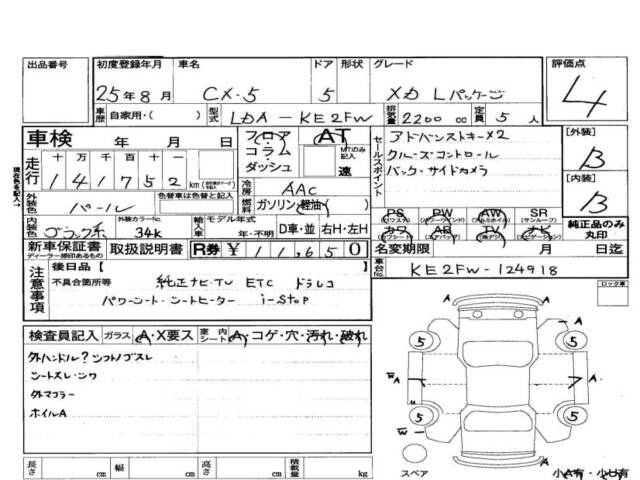 出品番号 初度登録年月 車名 ドア 形状 グレード 評価点
25年8月 CX-5 5 XD Lパッケージ 4
車歴 自家用・( ) 型式 LDA-KE2FW 排気量 2200cc 定員 5人
車検 年 月 日 フロア コラム・ダッシュ AT MTのみ記入 速
走行 十 万 千 百 十 一
141752 km
冷房 AAC
外装色 パール 色替車は色替と記入 燃料 ガソリン・軽油・( )
内装色 ブラック系 外装カラーNo. 34K 輸入車 モデル年式 年・不明 D車・並 右H・左H
セールスポイント
アドバンストキー×2
クルーズコントロール
バック・サイドカメラ
[外装] B
[内装] B
PS (パワステ) PW (パワーウインド) AW (アルミホイル) SR (サンルーフ)
カワ (革シート) AB (エアバック) TV (地デジ) ナビ (ナビゲーション)
純正品のみ丸印
新車保証書 ディーラー捺印あるもの 取扱説明書 R券 ¥11,650
名変期限 月 日迄
車台No. KE2FW-124918
現在色を記入→
注意事項
後日品【 】
不具合箇所等 純正ナビ・TV ETC ドラレコ
パワーシート・シートヒーター i-stop
ロック車
検査員記入 ガラス A・X要ス 室内 シート A・コゲ・穴・汚れ・破れ
シートスレ・シワ
外マコラー
ホイルA
5 A 5
A A
5 5
W A
スペア 小A有・小U有
長さ cm 幅 cm 高さ cm 積載量 kg